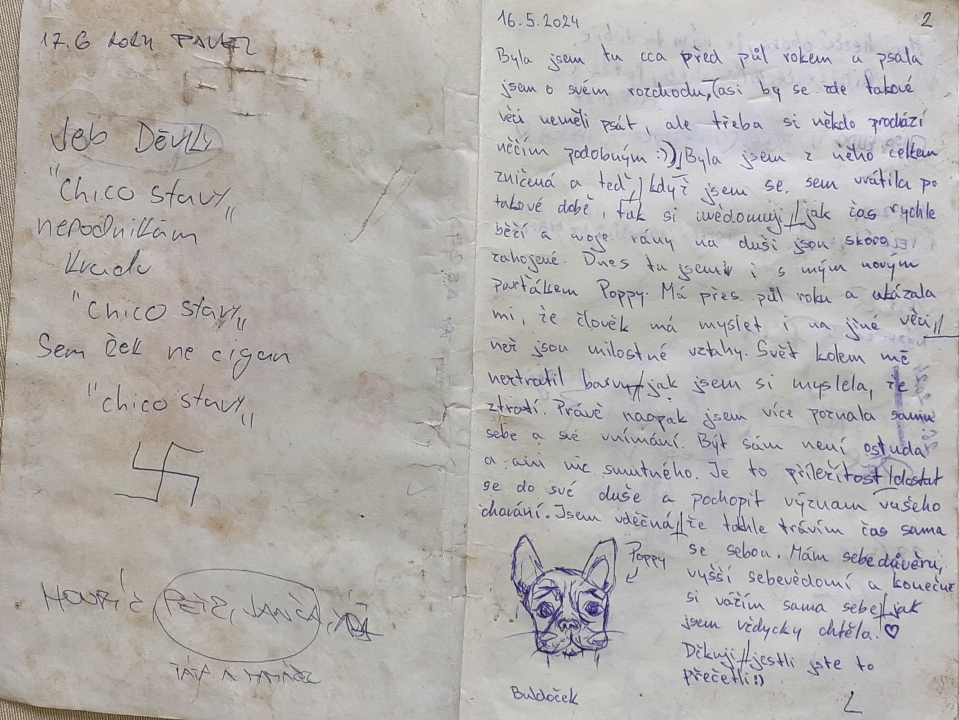 17.6 2024 PAVEL
Jeb Děvky
"Chico stavy„
nepodnikám
Kradu
"Chico stavy„
Sem Ček ne cigan
"chico stavy„
PETR, JANČA,
TÁTA A
16.5.2024
2
Byla jsem tu cca před půl rokem a psala
jsem o svém rozchodu, (asi by se zde takové
věci neměli psát, ale třeba si někdo prochází
něčím podobným :)) Byla jsem z něho celkem
zničená a teď, když jsem se sem vrátila po
takové době, tak si uvědomuji, jak čas rychle
běží a moje rány na duši jsou skoro
zahojené. Dnes tu jsem i s mým novým
parťákem Poppy. Má přes půl roku a ukázala
mi, že člověk má myslet i na jiné věci,
než jsou milostné vztahy. Svět kolem mě
neztratil barvy, jak jsem si myslela, že
ztratí. Právě naopak jsem více poznala samu
sebe a své vnímání. Být sám není ostuda
a ani nic smutného. Je to příležitost dostat
se do své duše a pochopit význam vašeho
chování. Jsem vděčná, že takhle trávím čas sama
se sebou. Mám sebedůvěru,
vyšší sebevědomí a konečně
si vážím sama sebe, jak
jsem vždycky chtěla. ♡
Děkuji, jestli jste to
přečetli :)
Poppy
Buldoček